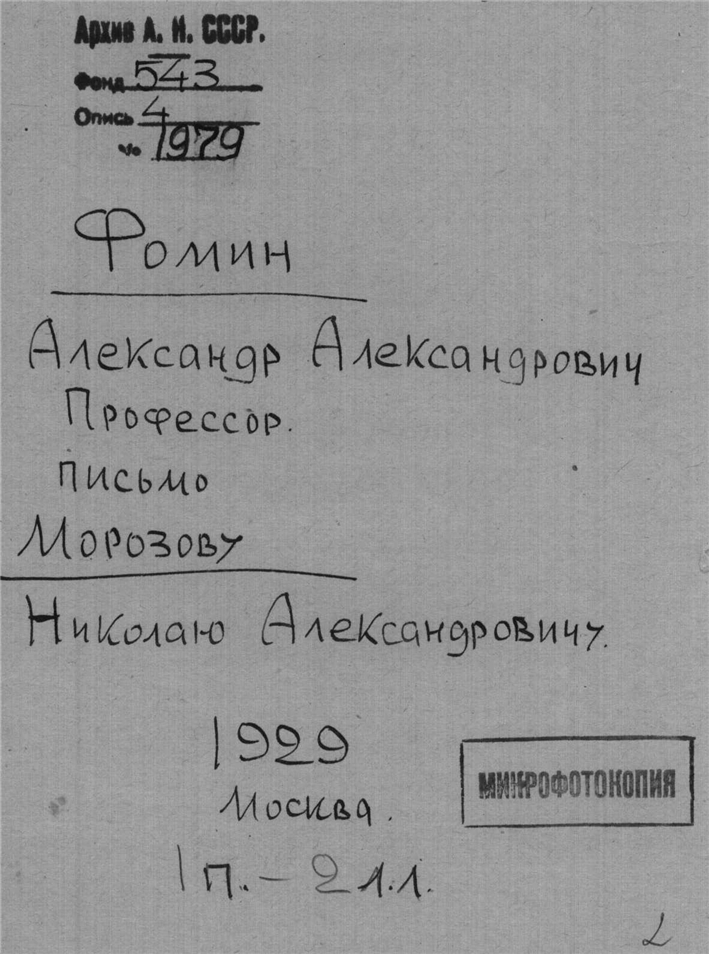 Архив А. Н. СССР.
Фонд 543
Опись 4
№ 1979
Фомин
Александр Александрович
Профессор.
письмо
Морозову
Николаю Александровичу.
1929
Москва.
МИКРОФОТОКОПИЯ
1 п. – 2 л.л.